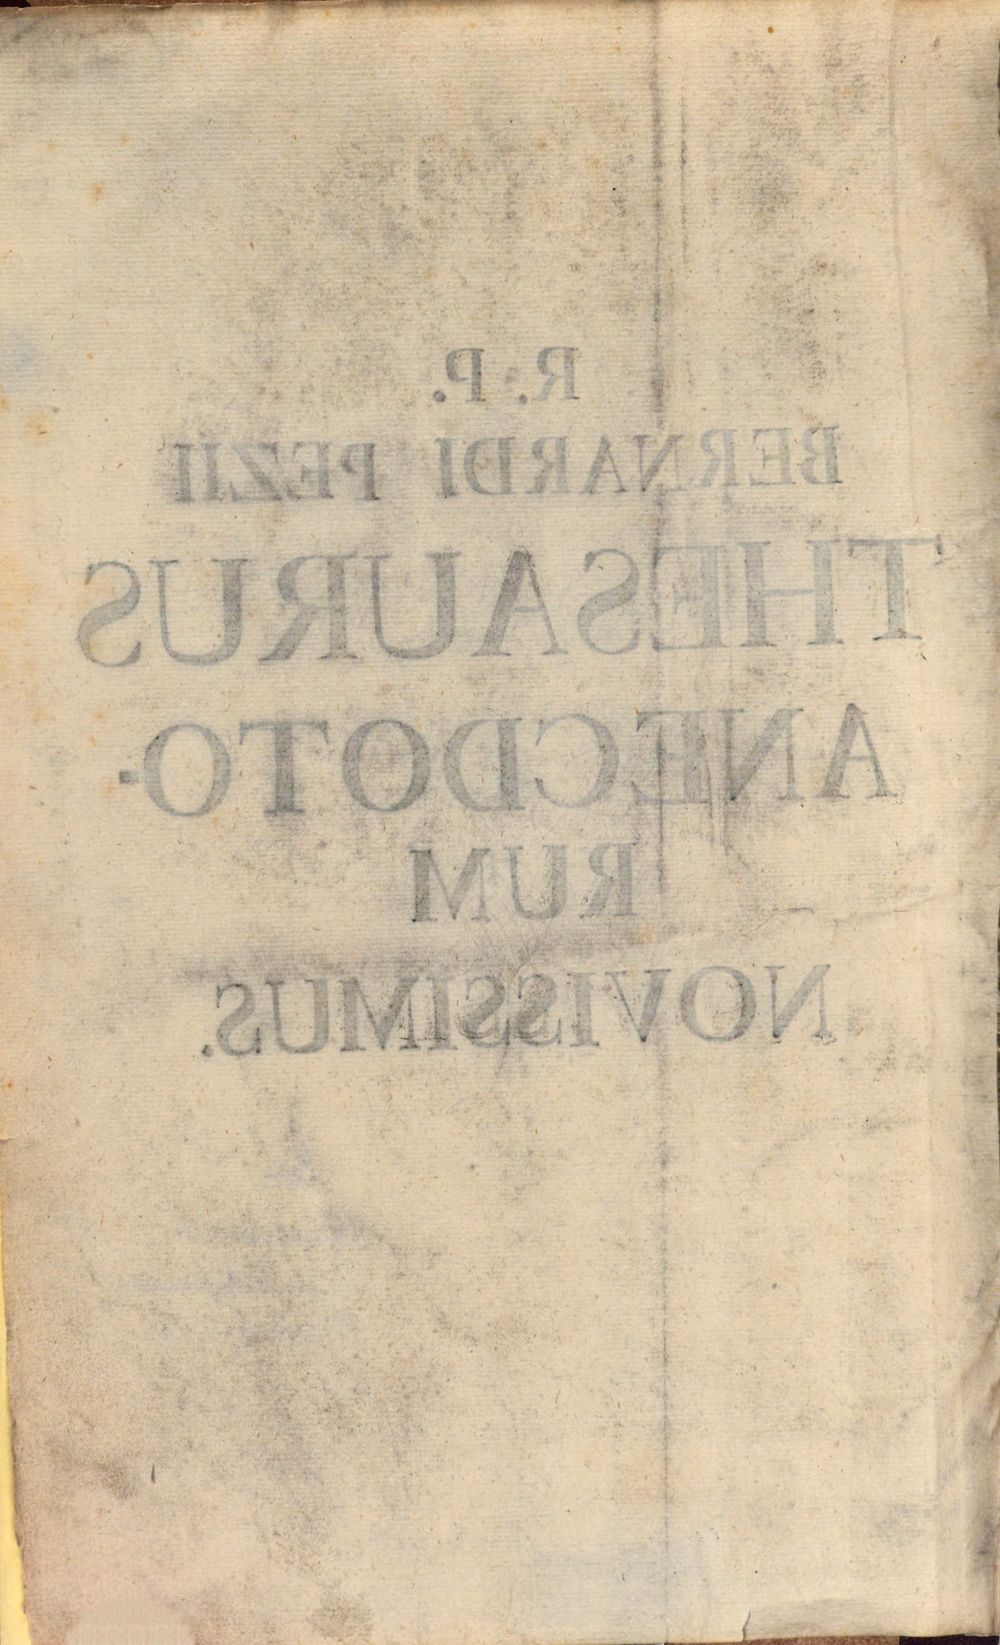 R. P.
BERNARDI PEZII
THESAURUS
ANECDOTO-
RUM
NOVISSIMUS.